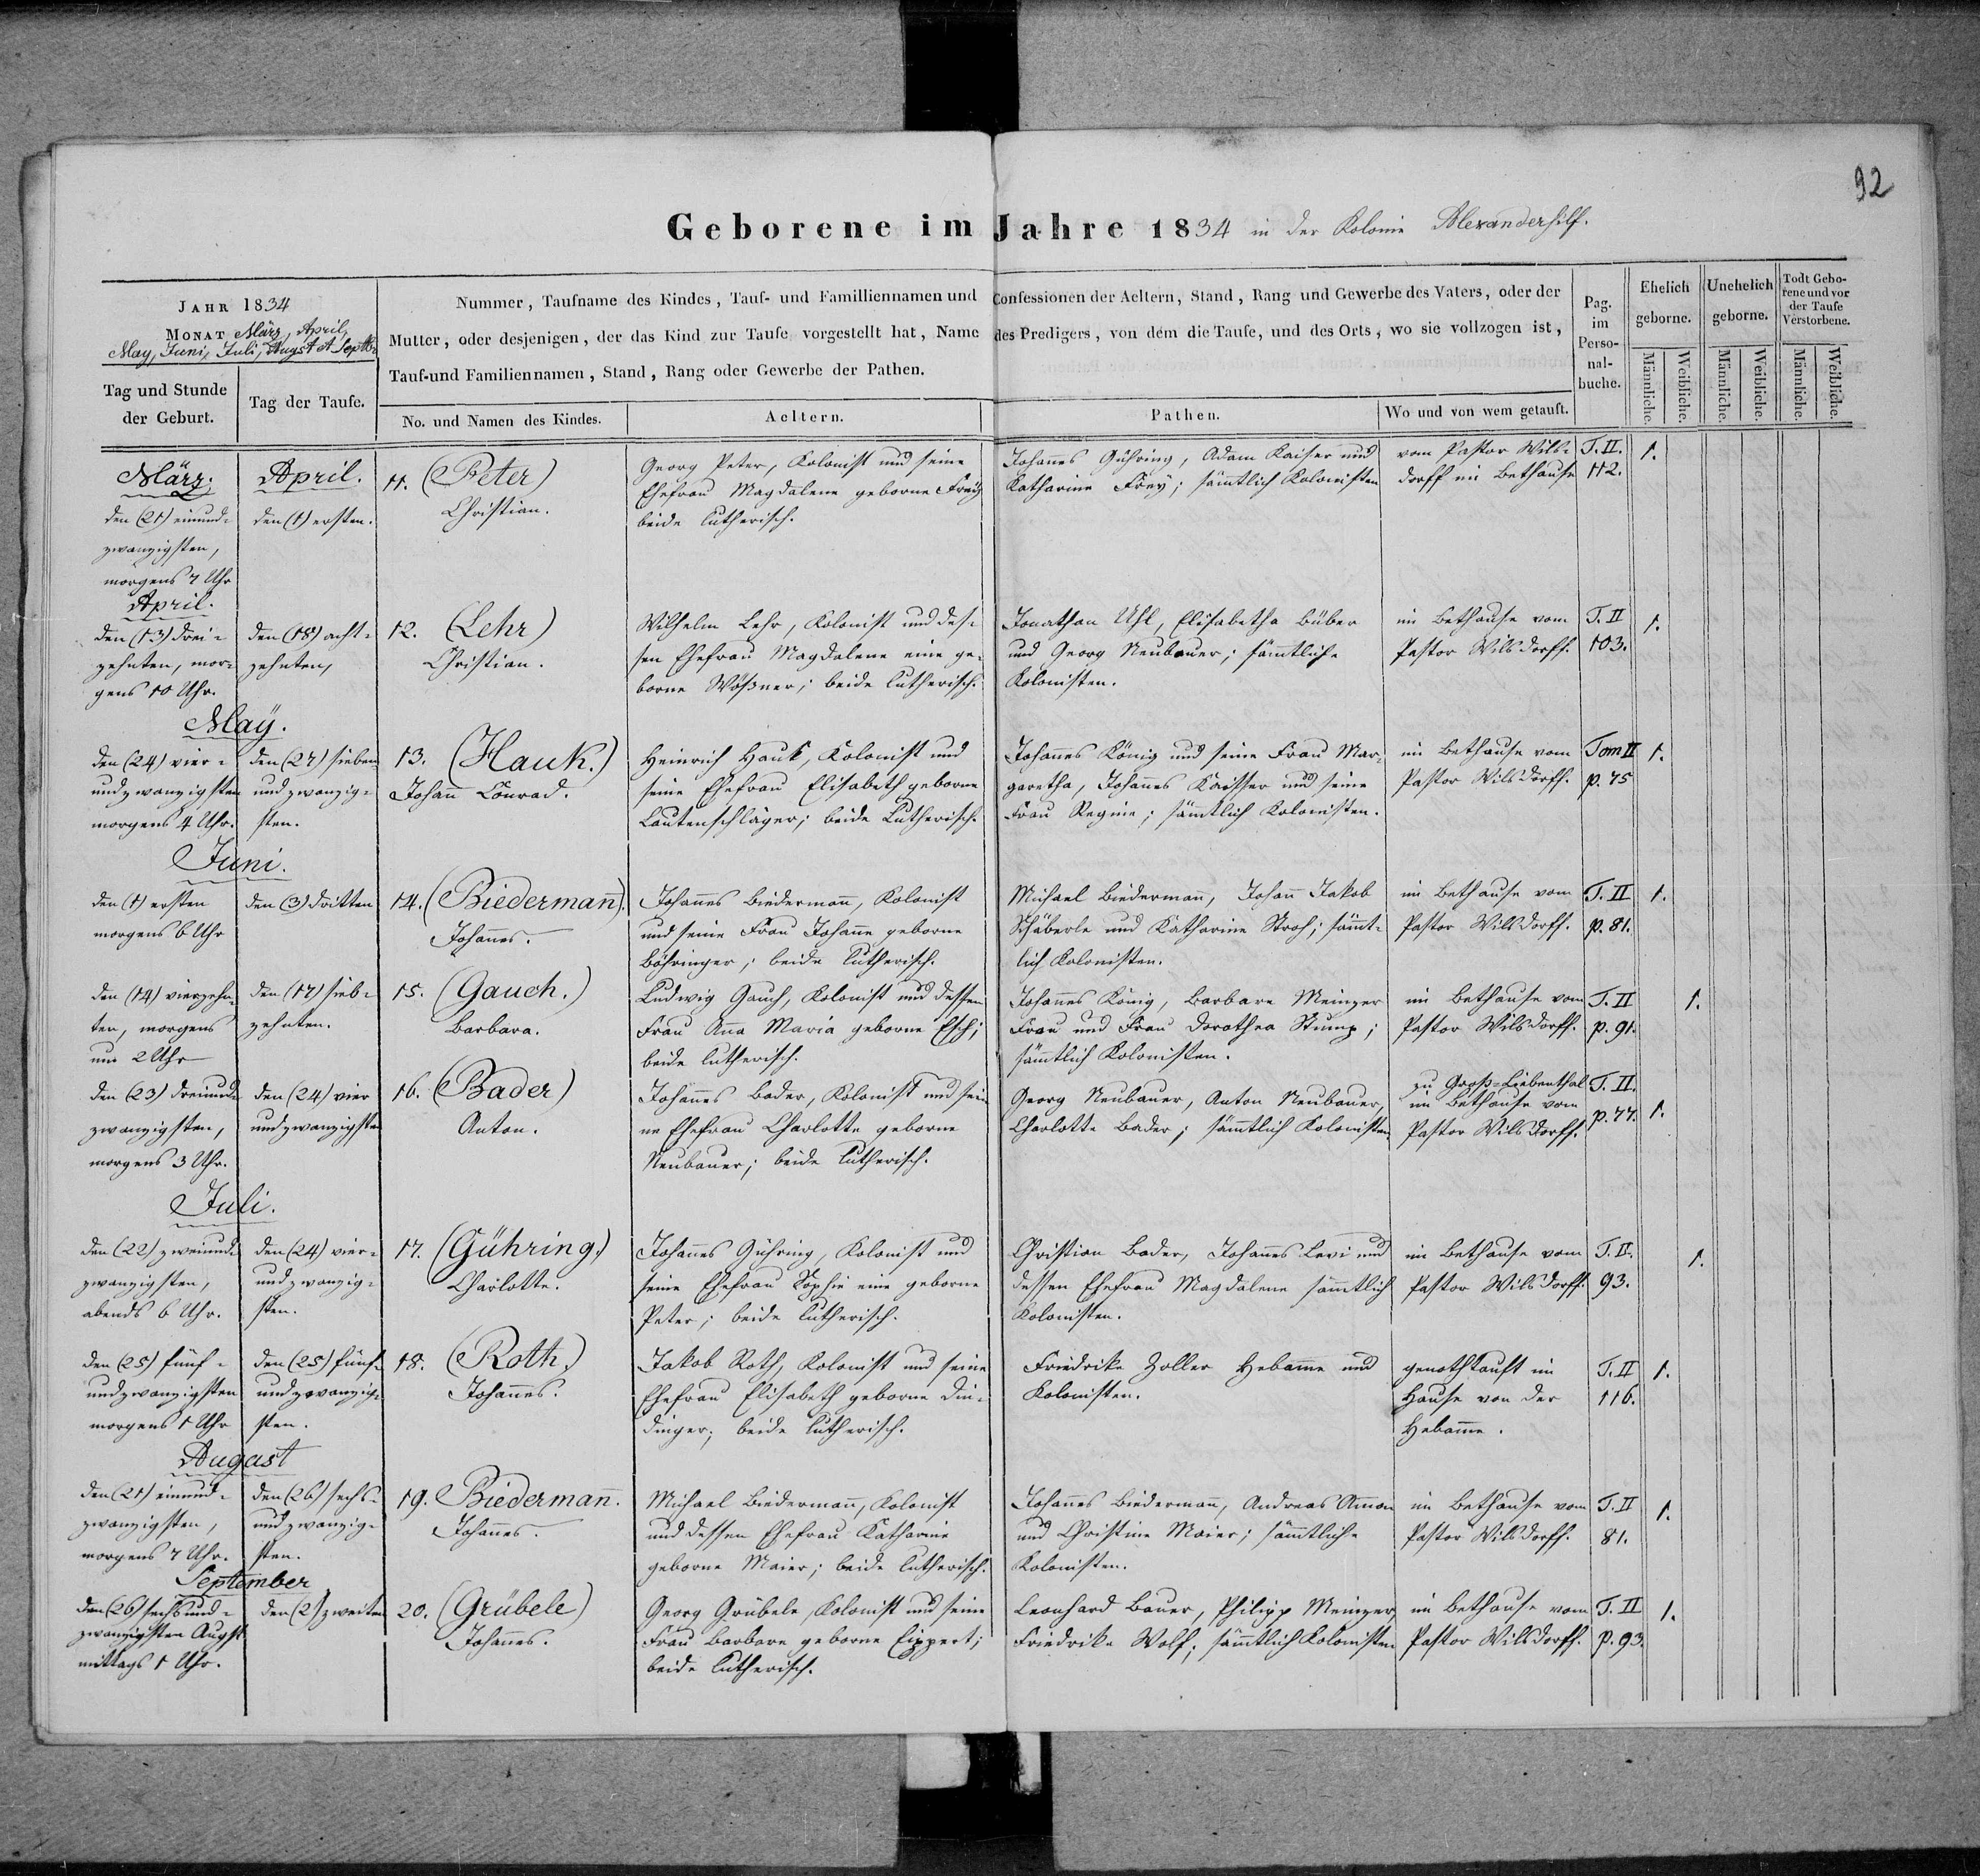 92
Geborene im Jahre 1834 in der Kolonie Alexanderhilf.
JAHR 1834
MONAT März, April,
May, Juni, Juli, Augst & Septbr
Tag und Stunde
der Geburt.
Tag der Taufe.
Nummer, Taufname des Kindes, Tauf- und Familliennamen und Confessionen der Aeltern, Stand, Rang und Gewerbe des Vaters, oder der
Mutter, oder desjenigen, der das Kind zur Taufe vorgestellt hat, Name des Predigers, von dem die Taufe, und des Orts, wo sie vollzogen ist,
Tauf-und Familiennamen, Stand, Rang oder Gewerbe der Pathen.
No. und Namen des Kindes.
Aeltern.
Pathen.
Wo und von wem getauft.
Pag.
im
Perso-
nal-
buche.
Ehelich
geborne.
Unehelich
geborne.
Todt Gebo-
rene und vor
der Taufe
Verstorbene.
Männliche.
Weibliche.
Männliche.
Weibliche.
Männliche.
Weibliche.
März.
den (21) einund-
zwanzigsten,
morgens 7 Uhr
April.
den (1) ersten.
11. (Peter)
Christian.
Georg Peter, Kolonist und seine
Ehefrau Magdalena geborne Frey
beide lutherisch.
Johannes Gühring, Adam Kaiser und
Katharina Frey; sämtlich Kolonisten
vom Pastor Wils-
dorff im Bethause
T. II.
112.
1.
April.
den (13) drei-
zehnten, mor-
gens 10 Uhr.
den (18) acht-
zehnten,
12. (Lehr)
Christian.
Wilhelm Lehr, Kolonist und des-
sen Ehefrau Magdalene eine ge-
borne Wößner; beide lutherisch.
Jonathan Uhl, Elisabetha Büber
und Georg Neubauer; sämmtliche
Kolonisten.
im Bethause vom
Pastor Wilsdorff.
T. II
103.
1.
May.
den (24) vier-
undzwanzigsten
morgens 4 Uhr.
den (27) sieben
undzwanzig-
sten.
13. (Hauk.)
Johann Conrad.
Heinrich Hauk, Kolonist und
seine Ehefrau Elisabeth geborne
Lautenschläger; beide Lutherisch.
Johannes König und seine Frau Mar-
garetha, Johannes Kaisser und seine
Frau Regine; sämtlich Kolonisten.
im Bethause vom
Pastor Wilsdorff.
Tom II
p. 75
1.
Juni.
den (1) ersten
morgens 6 Uhr
den (3) dritten
14. (Biedermann).
Johannes.
Johannes Biedermann, Kolonist
und seine Frau Johanne geborne
Böhringer; beide lutherisch.
Michael Biedermann, Johann Jakob
Schäberle und Katharine Stroh; sämt-
lich Kolonisten.
im Bethause vom
Pastor Wilsdorff.
T. II
p. 81.
1.
den (14) vierzehn
ten, morgens
um 2 Uhr
den (17) sieb-
zehnten.
15. (Gauch.)
Barbara.
Ludwig Gauch, Kolonist und dessen
Frau Anna Maria geborne Esch;
beide lutherisch.
Johannes König, Barbara Meinzer
Frau und Frau Dorothea Stump;
sämmtlich Kolonisten.
im Bethause vom
Pastor Wilsdorff.
T. II
p. 91.
1.
den (23) dreiund-
zwanzigsten,
morgens 3 Uhr.
den (24) vier
undzwanzigsten
16. (Bader)
Anton.
Johannes Bader, Kolonist und sei
ne Ehefrau Charlotte geborne
Neubauer; beide lutherisch.
Georg Neubauer, Anton Neubauer,
Charlotte Bader; sämmtlich Kolonisten
zu Groß-Liebenthal
im Bethause vom
Pastor Wilsdorff.
T. II.
p. 77.
1.
Juli.
den (22) zweiund-
zwanzigsten,
abends 6 Uhr.
den (24) vier-
undzwanzig-
sten.
17. (Gühring.)
Charlotte.
Johannes Gühring, Kolonist und
seine Ehefrau Sophie eine geborne
Peter; beide lutherisch.
Christian Bader, Johannes Levi und
dessen Ehefrau Magdalena sämmtlich
Kolonisten.
im Bethause vom
Pastor Wilsdorff.
T. II.
93.
1.
den (25) fünf-
undzwanzigsten
morgens 1 Uhr
den (25) fünf-
undzwanzig-
sten.
18. (Roth.)
Johannes.
Jakob Roth, Kolonist und seine
Ehefrau Elisabeth geborne Din-
dinger; beide lutherisch.
Friedrike Zoller Hebamme und
Kolonisten.
genothtauft im
Hause von der
Hebamme.
T. II
116.
1.
August
den (21) einund-
zwanzigsten,
morgens 7 Uhr.
den (26) sechs-
undzwanzig-
sten.
19. Biedermann.
Johannes.
Michael Biedermann, Kolonist
und dessen Ehefrau Katharine
geborne Maier; beide lutherisch.
Johannes Biedermann, Andreas Amon
und Christine Maier; sämmtliche
Kolonisten.
im Bethause vom
Pastor Wilsdorff.
T. II
81.
1.
September
den (26) sechsund-
zwanzigsten Augst
mittags 1 Uhr.
den (2) zweiten
20. (Grübele)
Johannes.
Georg Grübele, Kolonist und seine
Frau Barbara geborne Lippert;
beide lutherisch.
Leonhard Bauer, Philipp Meinzer,
Friedrika Wolf; sämmtlich Kolonisten
im Bethause vom
Pastor Wilsdorff.
T. II
p. 93.
1.